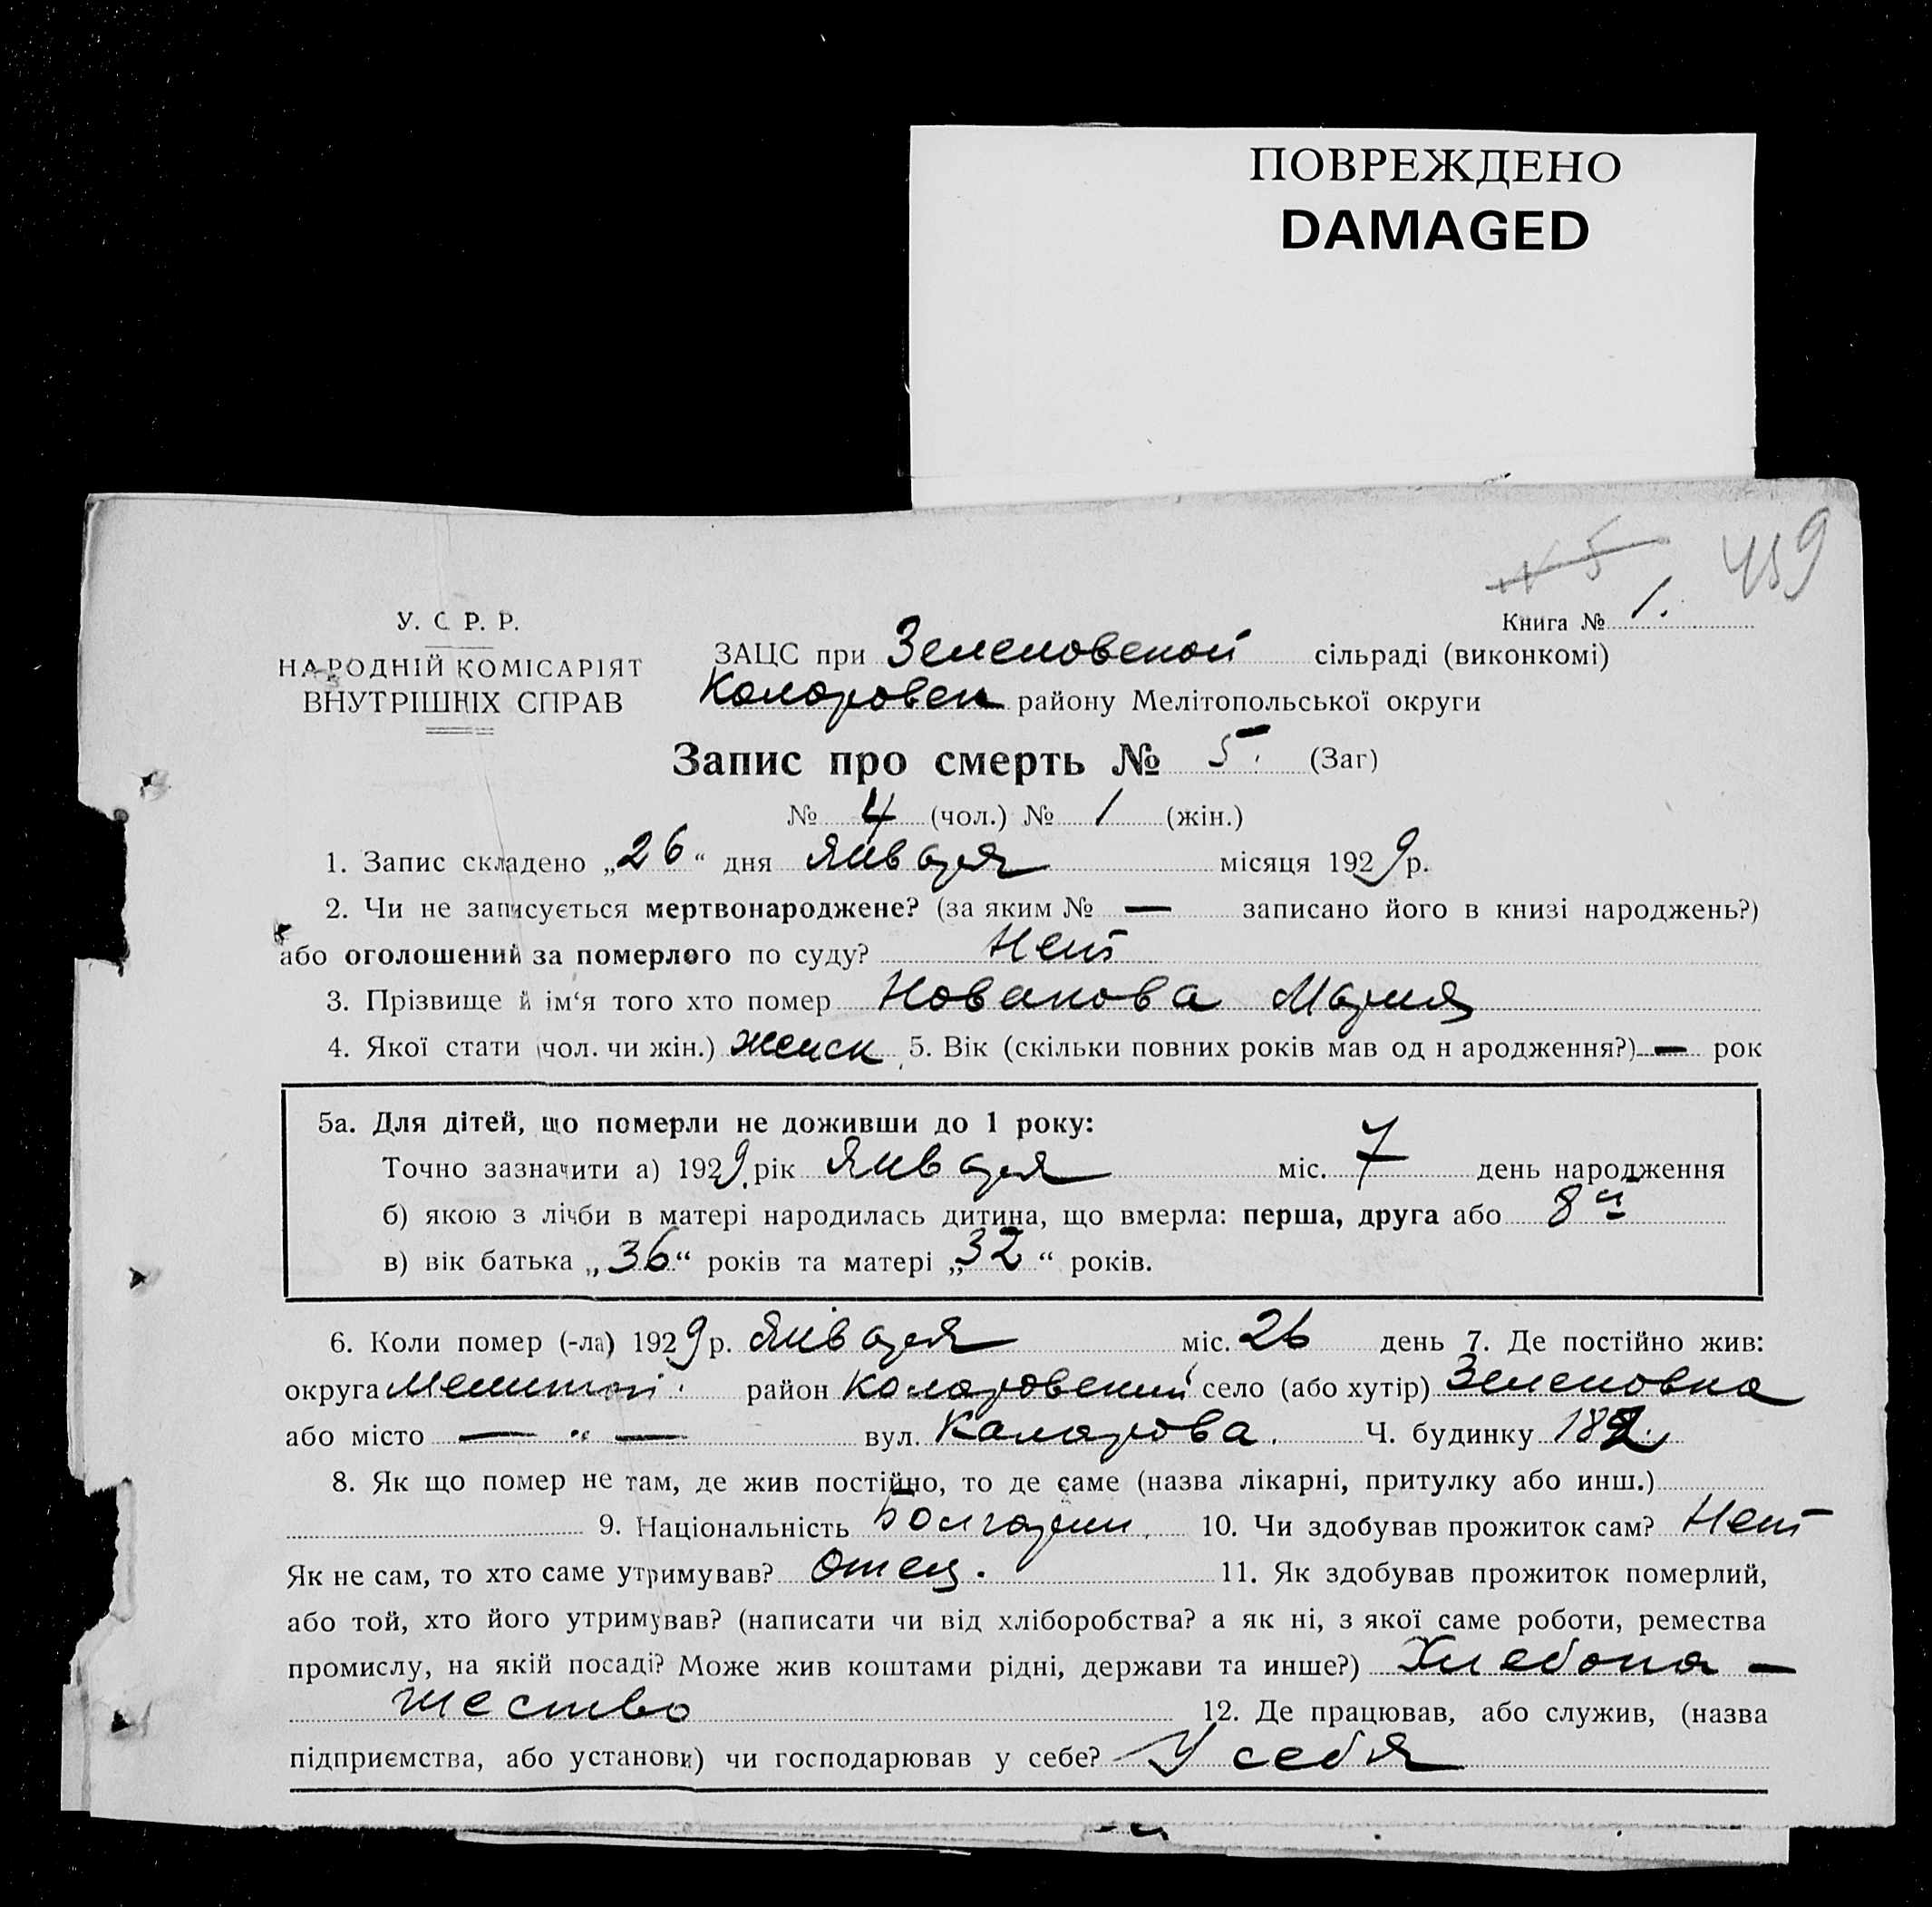 ПОВРЕЖДЕНО
DAMAGED
№ 5
459
Книга № 1.
У. С. Р. Р.
НАРОДНІЙ КОМІСАРІЯТ
ВНУТРІШНІХ СПРАВ
ЗАЦС при Зеленовской сільраді (виконкомі)
Коларовск району Мелітопольської округи
Запис про смерть № 5. (Заг)
№ 4 (чол.) № 1 (жін.)
1. Запис складено „26“ дня января місяця 1929 р.
2. Чи не записується мертвонароджене? (за яким № — записано його в книзі народжень?)
або оголошений за померлого по суду? Нет
3. Прізвище й ім‘я того хто помер Новакова Мария
4. Якої стати (чол. чи жін.) женск 5. Вік (скільки повних років мав од н ародження?) — рок
5а. Для дітей, що померли не доживши до 1 року:
Точно зазначити а) 1929. рік января міс. 7 день народження
б) якою з лічби в матері народилась дитина, що вмерла: перша, друга або 8й
в) вік батька „36“ років та матері „32“ років.
6. Коли помер (-ла) 1929 р. января міс. 26 день 7. Де постійно жив:
округа район Коларовский село (або хутір) Зеленовка
або місто — „ — вул. Каларова. Ч. будинку 182.
8. Як що помер не там, де жив постійно, то де саме (назва лікарні, притулку або инш.)
9. Національність Болгарин. 10. Чи здобував прожиток сам? Нет
Як не сам, то хто саме утримував? Отец. 11. Як здобував прожиток померлий,
або той, хто його утримував? (написати чи від хліборобства? а як ні, з якої саме роботи, ремества
промислу, на якій посаді? Може жив коштами рідні, держави та инше?) Хлебопа-
шество 12. Де працював, або служив, (назва
підприємства, або установи) чи господарював у себе? У себя